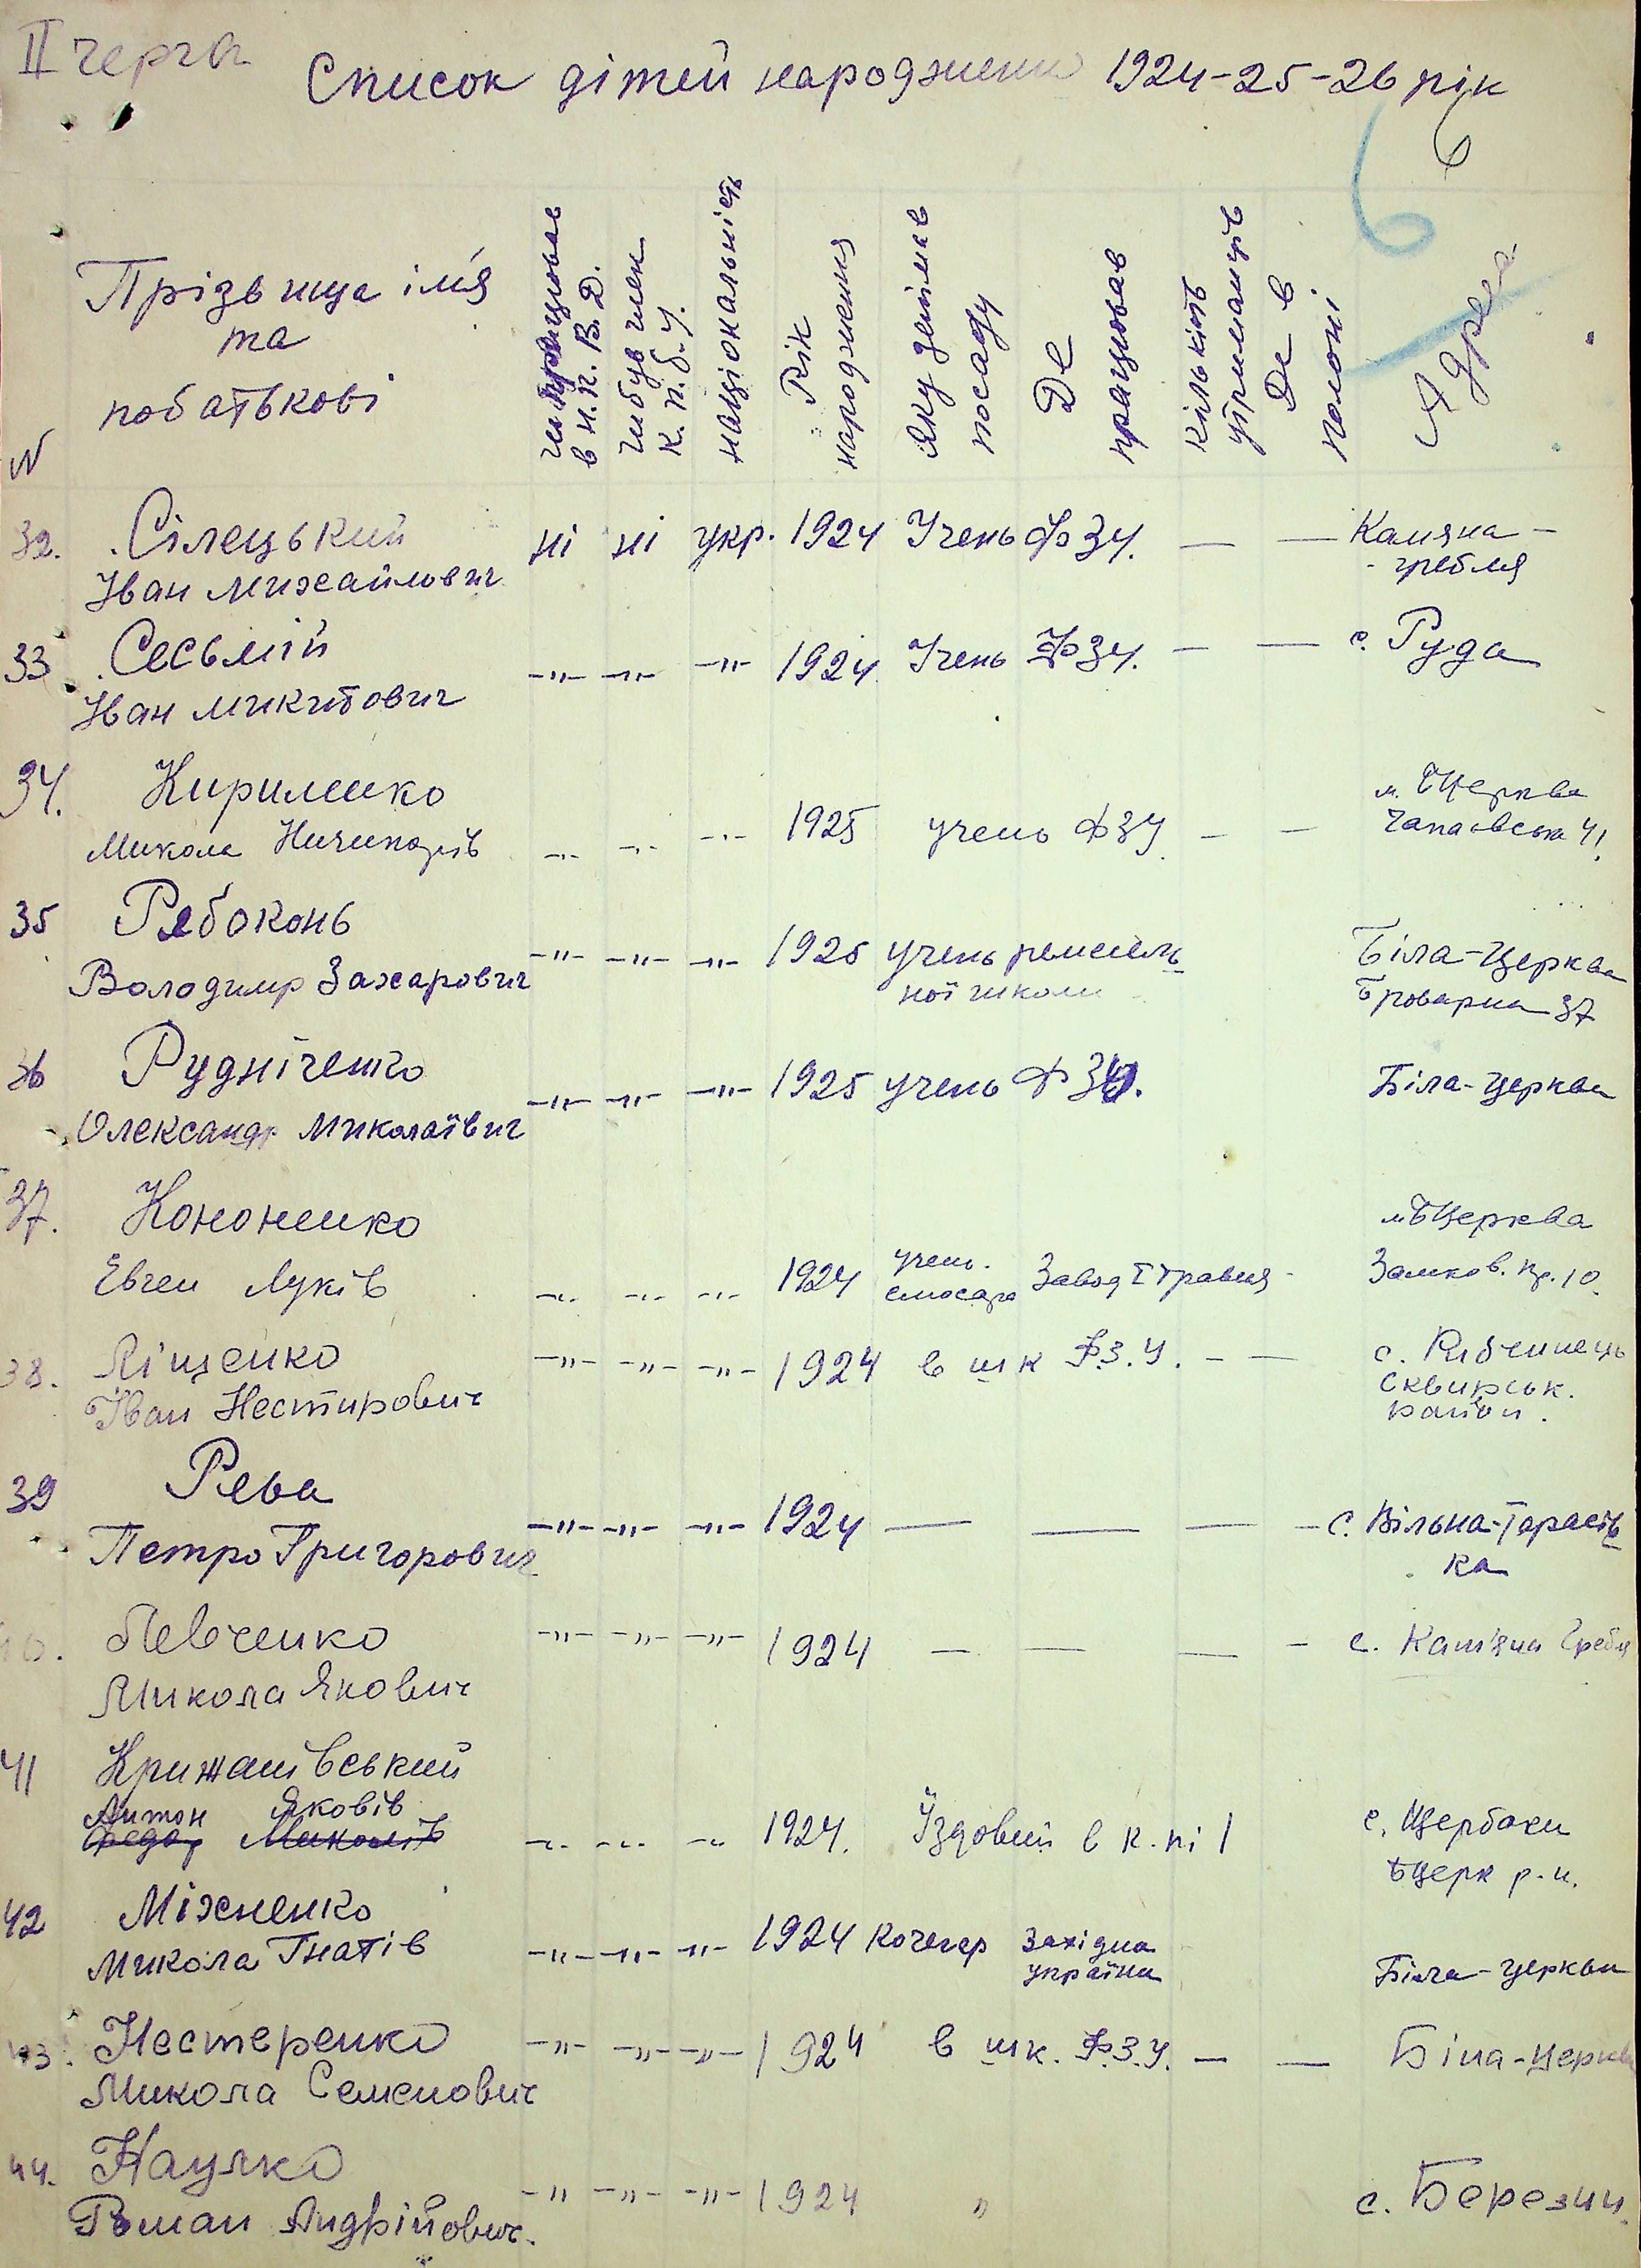 ІІ черга
Список дітей народжени 1924-25-26 рік
6
6
N
Прізьвища ім'я
та
побатькові
чи працював
в Н.К.В.Д.
чи був член
К.П.б.У.
національність
Рік
народження
Яку займав
посаду
Де
працював
кількість
утриманців
Де в
полоні
Адреса
32. Сілецький ні ні укр. 1924 Учень ФЗУ. — — Камяна-
Іван Михайлович - гребля
33 Сесьмій -"- -"- -"- 1924 Учень ФЗУ. — — с. Руда
Іван Микитович
34. Кириленко м. БЦерква
Микола Ничипорів -"- -"- -"- 1925 учень ФЗУ — — Чапаєвська 41
35 Рябоконь -"- -"- -"- 1925 учень ремесель Біла-Церква
Володимир Захарович ної школи Броварна 37
36 Рудніченко -"- -"- -"- 1925 учень ФЗУ. Біла-Церква
Олександр Миколаївич
37. Кононенко м. БЦерква
Евген Луків -"- -"- -"- 1924 учень слюсаря Завод І травня - Замков. пр. 10.
38. Ліщенко -"- -"- -"- 1924 в шк Ф.З.У. — — с. Рибчинець
Іван Нестирович Сквирськ.
район.
39 Рева
Петро Григорович -"- -"- -"- 1924 — — — — с. Вільна-Тарасів
ка
40. Левченко -"- -"- -"- 1924 — — — - с. Кам'яна Гребля
Микола Якович
41 Крижанівський
Антон Яковів
Федор Миколів -"- -"- -"- 1924. Їздовий в к-пі 1 с. Щербаки
БЦерк р-н.
42 Міхненко
Микола Гнатів -"- -"- -"- 1924 Кочегар Західна Біла-Церква
україна
43. Нестеренко -"- -"- -"- 1924 в шк. Ф.З.У. — — Біла-церква
Микола Семенович
44. Наулко
Роман Андрійович. -"- -"- -"- 1924 " с. Березни.